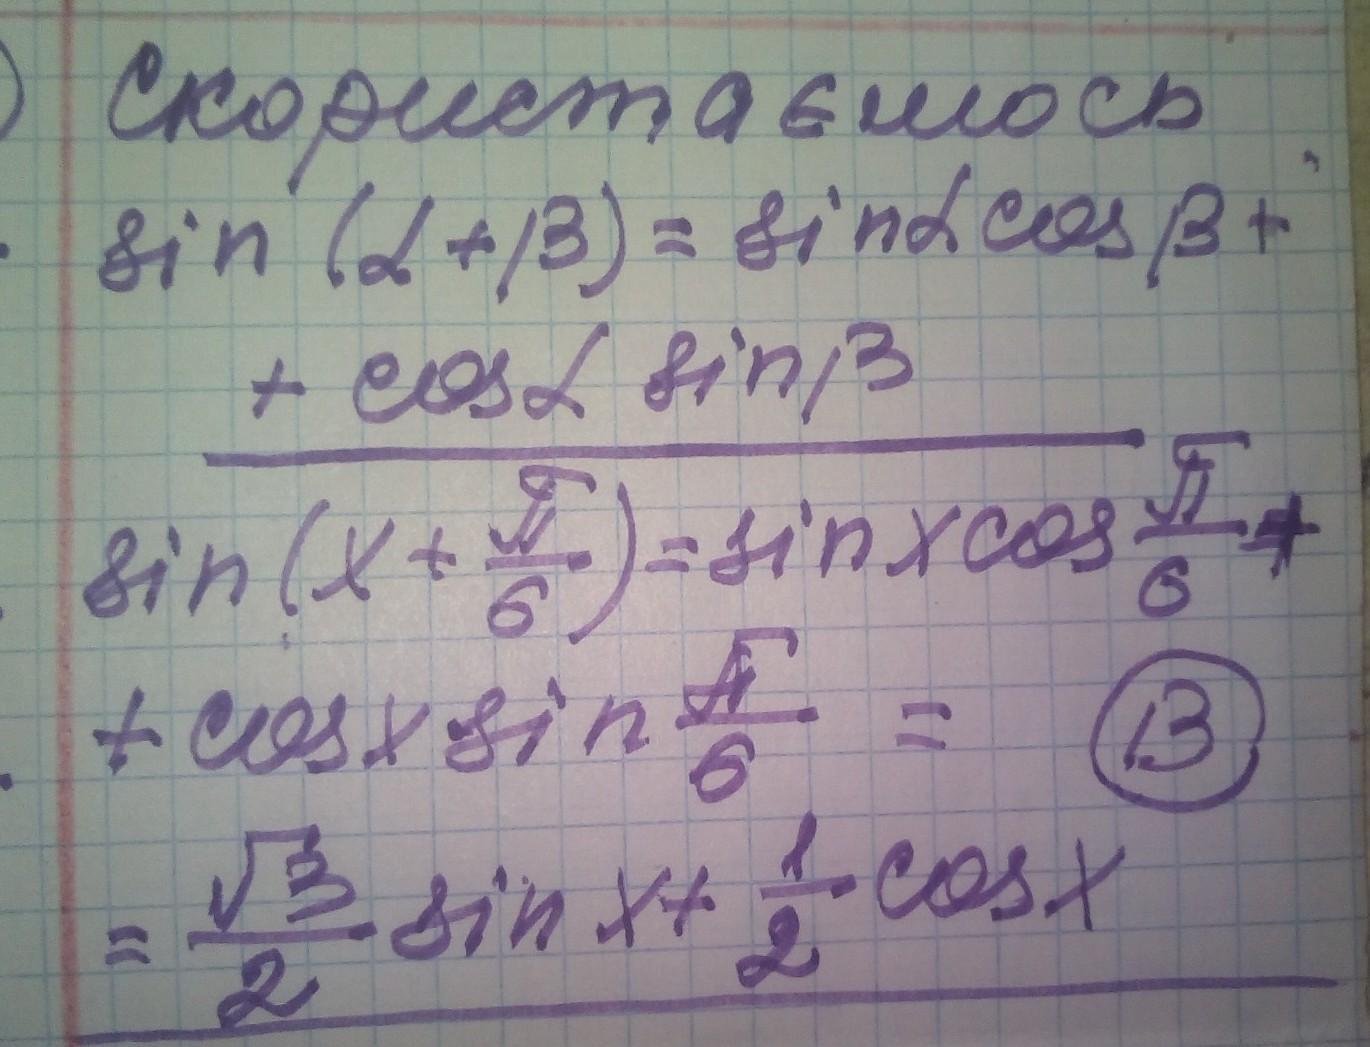 ) Скористаємось
sin (α+β) = sinα cosβ +
+ cosα sinβ
sin(x + π/6) = sin x cos π/6 +
+ cos x sin π/6 = В
= √3/2 sin x + 1/2 cos x